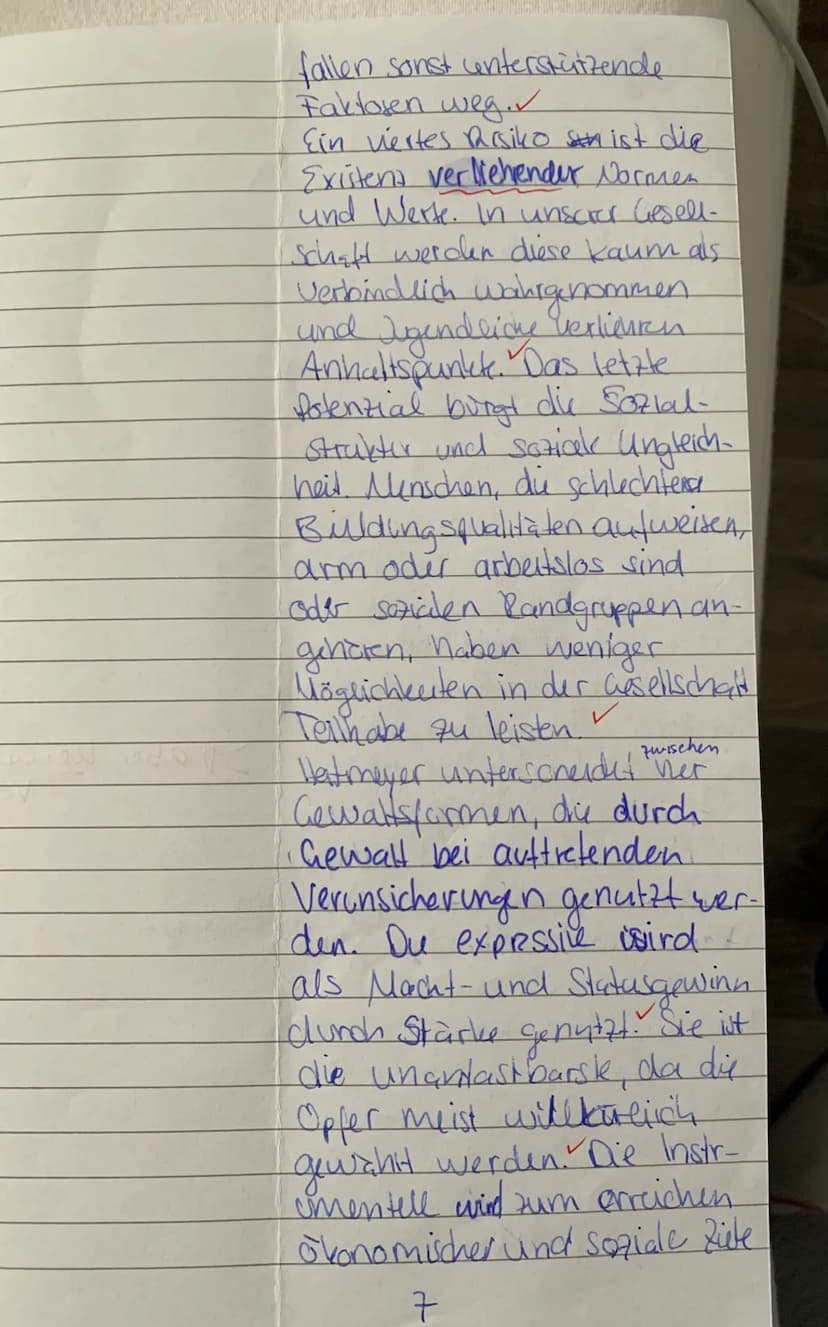 fallen sonst unterstützende
Faktoren weg.
Ein viertes Risiko ist die
Existenz verliehender Normen
und Werte. In unserer Gesell-
schaft werden diese kaum als
verbindlich wahrgenommen
und Jugendliche verlieren
Anhaltspunkte. Das letzte
Potenzial bürgt die Sozial-
struktur und soziale Ungleich-
heit. Menschen, die schlechtere
Bildungsqualitäten aufweisen,
arm oder arbeitslos sind
oder sozialen Randgruppen an-
gehören, haben weniger
Möglichkeiten in der Gesellschaft
Teilhabe zu leisten.
Heitmeyer unterscheidet zwischen vier
Gewaltsformen, die durch
Gewalt bei auftretenden
Verunsicherungen genutzt wer-
den. Die expressive wird
als Macht- und Statusgewinn
durch Stärke genutzt. Sie ist
die unantastbarste, da die
Opfer meist willkürlich
gewählt werden. Die Instr-
umentelle wird zum erreichen
ökonomischer und soziale Ziele
7